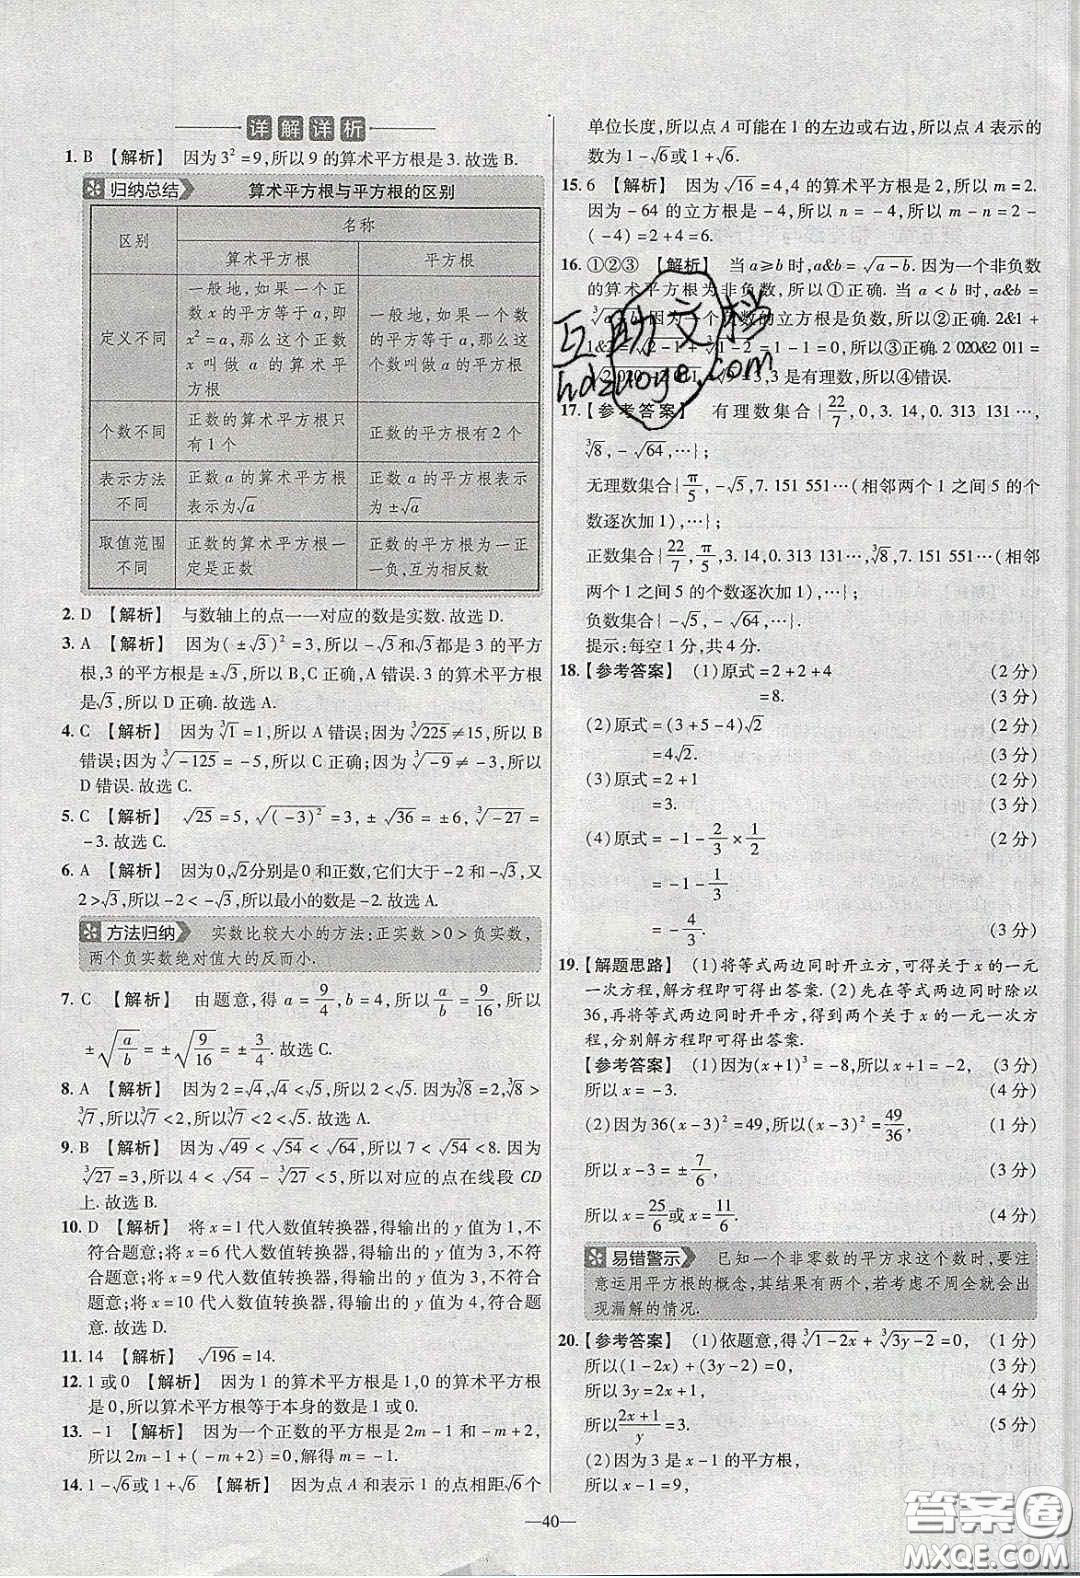 详解详析
1. B 【解析】 因为3²=9,所以9的算术平方根是3.故选B.
归纳总结 算术平方根与平方根的区别
区别 名称
算术平方根 平方根
定义不同 一般地,如果一个正数x的平方等于a,即x²=a,那么这个正数x叫做a的算术平方根 一般地,如果一个数的平方等于a,那么这个数叫做a的平方根
个数不同 正数的算术平方根只有1个 正数的平方根有2个
表示方法不同 正数a的算术平方根表示为√a 正数a的平方根表示为±√a
取值范围不同 正数的算术平方根一定是正数 正数的平方根为一正一负,互为相反数
2. D 【解析】 与数轴上的点一一对应的数是实数.故选D.
3. A 【解析】 因为(±√3)²=3,所以-√3和√3都是3的平方
根,3的平方根是±√3,所以B,C正确,A错误.3的算术平方根
是√3,所以D正确.故选A.
4. C 【解析】 因为∛1=1,所以A错误;因为∛225≠15,所以B
错误;因为∛-125=-5,所以C正确;因为∛-9≠-3,所以
D错误.故选C.
5. C 【解析】 √25=5,√(-3)²=3,±√36=±6,∛-27=
-3.故选C.
6. A 【解析】 因为0,√2分别是0和正数,它们大于-2和-√3,又
2>√3,所以-2<-√3,所以最小的数是-2.故选A.
方法归纳 实数比较大小的方法:正实数>0>负实数,
两个负实数绝对值大的反而小.
7. C 【解析】 由题意,得a=9/4,b=4,所以a/b=9/16,所以
±√(a/b)=±√(9/16)=±3/4.故选C.
8. A 【解析】 因为2=√4,√4<√5,所以2<√5.因为∛8=2,∛8>
∛7,所以∛7<2,所以∛7<2<√5.故选A.
9. B 【解析】 因为√49<√54<√64,所以7<√54<8.因为
∛27=3,所以4<√54-∛27<5,所以对应的点在线段CD
上.故选B.
10. D 【解析】 将x=1代入数值转换器,得输出的y值为1,不
符合题意;将x=6代入数值转换器,得输出的y值为3,不符
合题意;将x=9代入数值转换器,得输出的y值为2,不符合
题意;将x=10代入数值转换器,得输出的y值为4,符合题
意.故选D.
11. 14 【解析】 √196=14.
12. 1或0 【解析】 因为1的算术平方根是1,0的算术平方根
是0,所以算术平方根等于本身的数是1或0.
13. -1 【解析】 因为一个正数的平方根是2m-1和-m+2,
所以2m-1+(-m+2)=0,解得m=-1.
14. 1-√6或1+√6 【解析】 因为点A和表示1的点相距√6个
单位长度,所以点A可能在1的左边或右边,所以点A表示的
数为1-√6或1+√6.
15. 6 【解析】 因为√16=4,4的算术平方根是2,所以m=2.
因为-64的立方根是-4,所以n=-4,所以m-n=2-
(-4)=2+4=6.
16. ①②③ 【解析】 当a≥b时,a&b=√a-b.因为一个非负数
的算术平方根为非负数,所以①正确.当a<b时,a&b=
因为一个负数的立方根是负数,所以②正确.2&1+
1&2=√2-1+∛1-2=1-1=0,所以③正确.2 020&2 011=
√2 020-2 011=√9=3,3是有理数,所以④错误.
17. 【参考答案】 有理数集合{22/7,0,3.14,0.313 131…,
∛8,-√64,…};
无理数集合{π/5,-√5,7.151 551…(相邻两个1之间5的个
数逐次加1),…};
正数集合{22/7,π/5,3.14,0.313 131…,∛8,7.151 551…(相邻
两个1之间5的个数逐次加1),…};
负数集合{-√5,-√64,…}.
提示:每空1分,共4分.
18. 【参考答案】 (1)原式=2+2+4 (2分)
=8. (3分)
(2)原式=(3+5-4)√2 (2分)
=4√2. (3分)
(3)原式=2+1 (2分)
=3. (3分)
(4)原式=-1-2/3×1/2 (2分)
=-1-1/3
=-4/3. (3分)
19. 【解题思路】 (1)将等式两边同时开立方,可得关于x的一元
一次方程,解方程即可得出答案.(2)先在等式两边同时除以
36,再将等式两边同时开平方,得到两个关于x的一元一次方
程,分别解方程即可得出答案.
【参考答案】 (1)因为(x+1)³=-8, (3分)
所以x=-3. (4分)
(2)因为36(x-3)²=49,所以(x-3)²=49/36, (1分)
所以x-3=±7/6, (3分)
所以x=25/6或x=11/6. (4分)
易错警示 已知一个非零数的平方求这个数时,要注
意运用平方根的概念,其结果有两个,若考虑不周全就会出
现漏解的情况.
20. 【参考答案】 (1)依题意,得∛1-2x+∛3y-2=0, (1分)
所以(1-2x)+(3y-2)=0, (3分)
所以3y=2x+1, (4分)
所以(2x+1)/y=3. (5分)
(2)因为3是x-1的平方根,
所以x-1=9,
—40—
互助文档
hdzuoye.com
答案圈
MXQE.COM